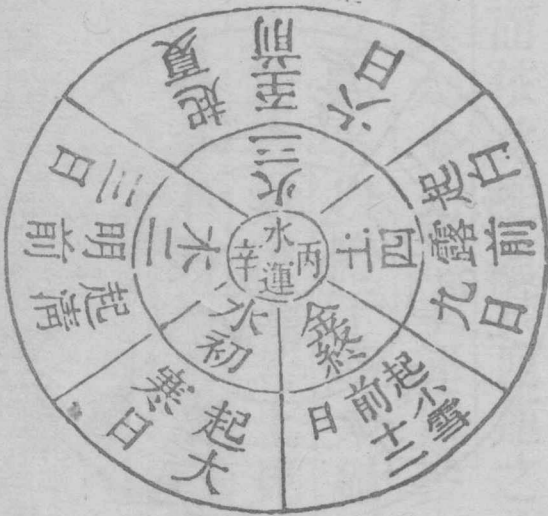 丙
水運
辛
水初
木二
火三
土四
金終
起大
寒日
起清
明前
三日
起夏
至前
六日
起白
露前
九日
起小雪
前十二
日